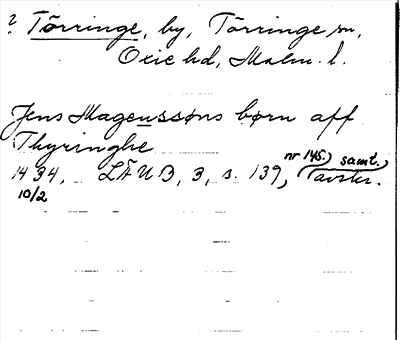 ? Törringe, by, Törringe sn,
Oxie hd, Malm. l.
Jens Magenssøns børn aff
Thyringhe
1434, LÄUB, 3, s. 139, nr 145, samt. avskr.
10/2